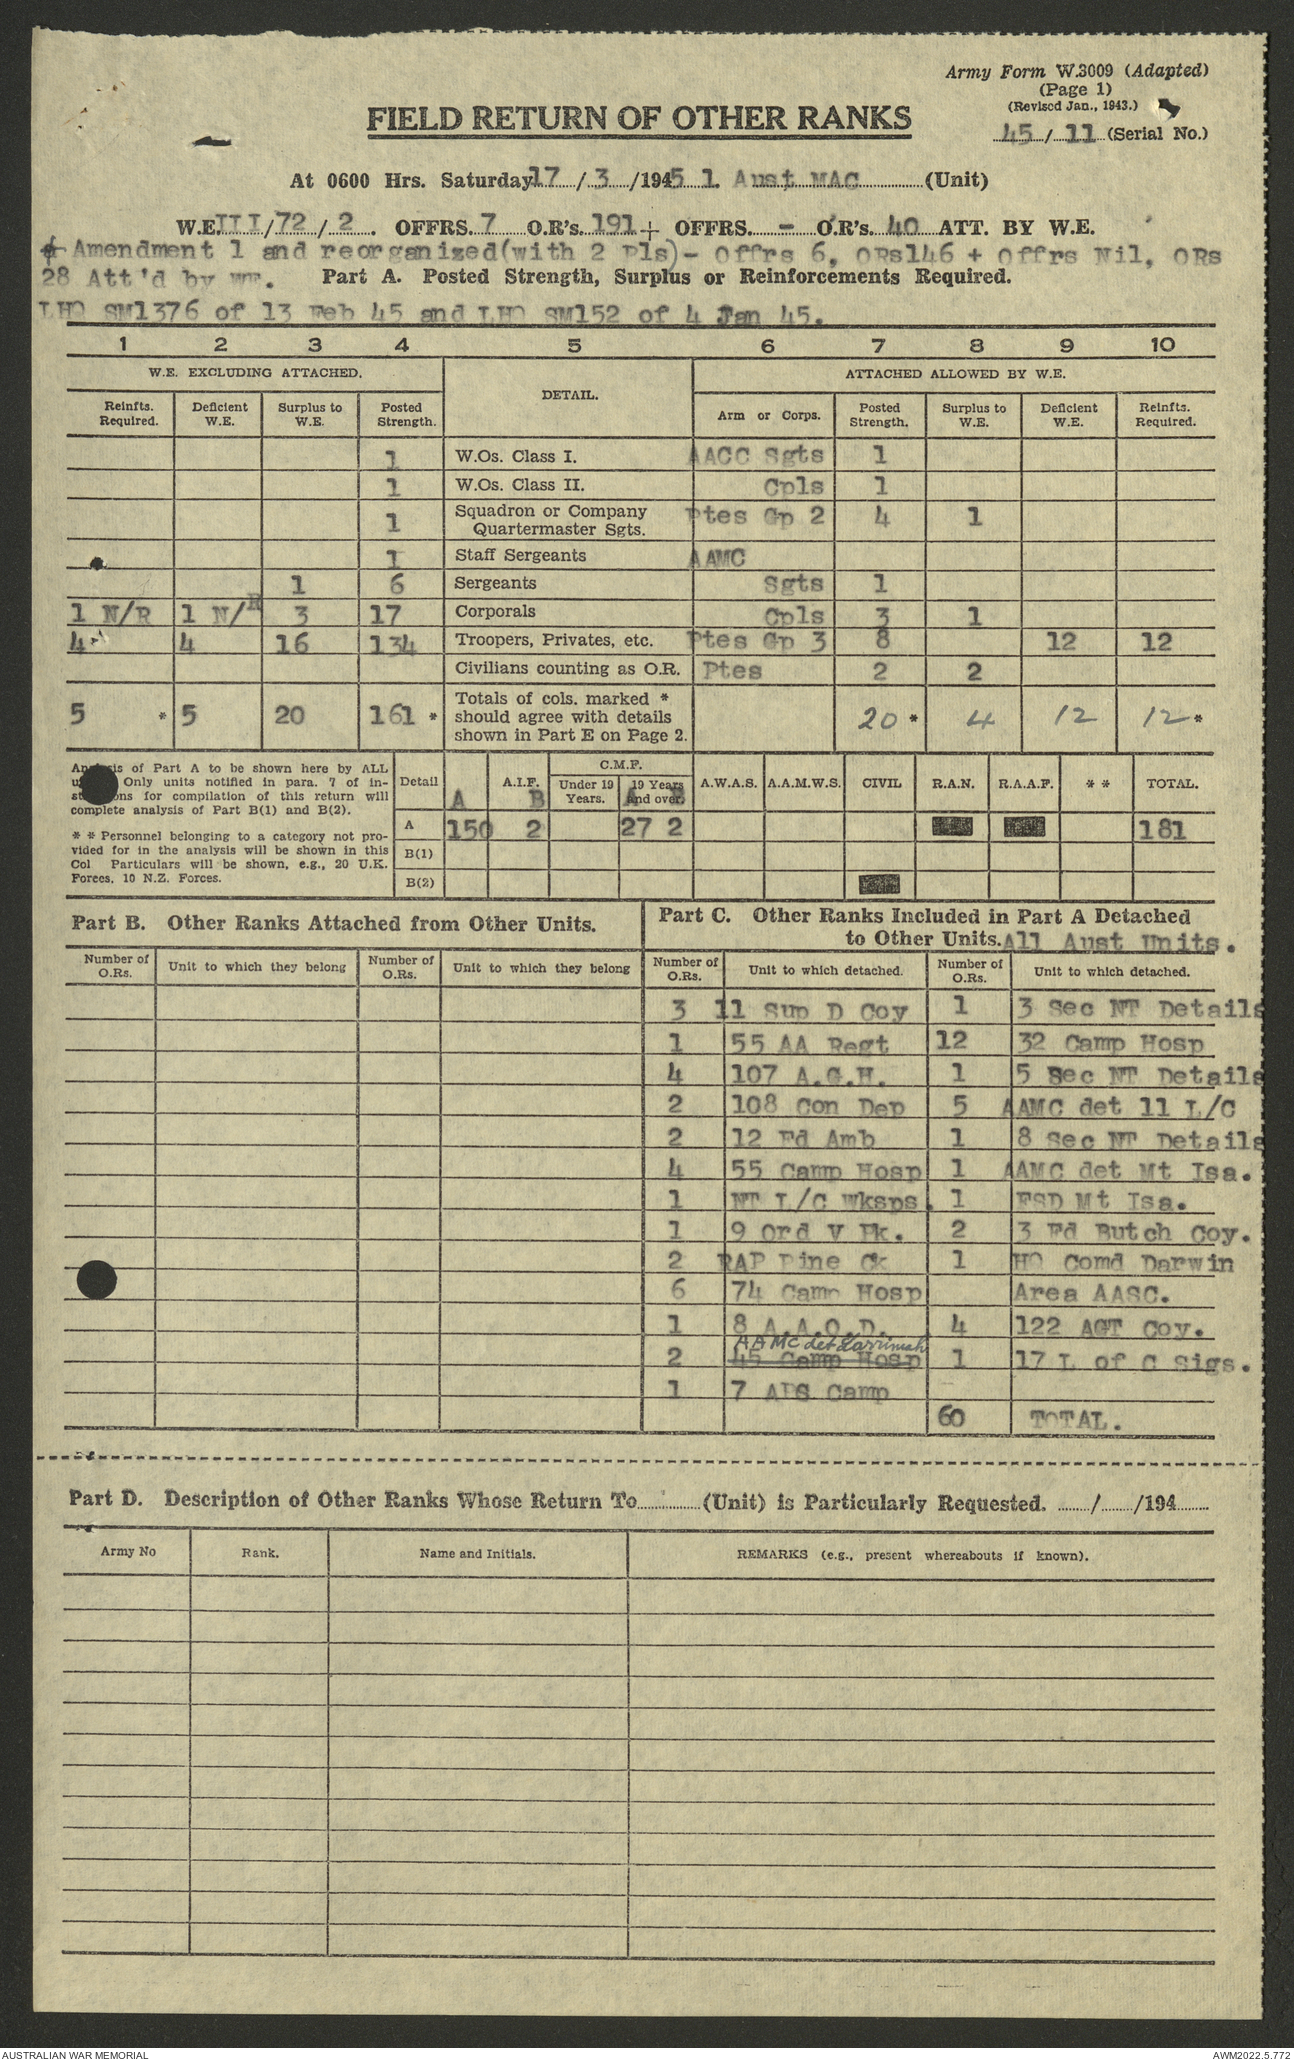 Army Form W.3009 (Adapted)
(Page 1)
(Revised Jan., 1943.)
FIELD RETURN OF OTHER RANKS
45/11 (Serial No.)
At 0600 Hrs. Saturday 17/3/1945 1. Aust MAC (Unit)
W.E. III/72/2. OFFRS. 7 O.R's. 191 + OFFRS. - O.R's. 40 ATT. BY W.E.
+ Amendment 1 and reorganized(with 2 Pls)- Offrs 6, ORs146 + Offrs Nil, ORs
28 Att'd by WE. Part A. Posted Strength, Surplus or Reinforcements Required.
LHQ SM1376 of 13 Feb 45 and LHQ SM152 of 4 Jan 45.
1 2 3 4 5 6 7 8 9 10
W.E. EXCLUDING ATTACHED. DETAIL. ATTACHED ALLOWED BY W.E.
Reinfts. Required. Deficient W.E. Surplus to W.E. Posted Strength. Arm or Corps. Posted Strength. Surplus to W.E. Deficient W.E. Reinfts. Required.
1 W.Os. Class I. AACC Sgts 1
1 W.Os. Class II. Cpls 1
1 Squadron or Company Quartermaster Sgts. Ptes Gp 2 4 1
1 Staff Sergeants AAMC
1 6 Sergeants Sgts 1
1 N/R 1 N/R 3 17 Corporals Cpls 3 1
4 4 16 134 Troopers, Privates, etc. Ptes Gp 3 8 12 12
Civilians counting as O.R. Ptes 2 2
5 * 5 20 161 * Totals of cols. marked * should agree with details shown in Part E on Page 2. 20 * 4 12 12 *
Analysis of Part A to be shown here by ALL
Only units notified in para. 7 of in-
structions for compilation of this return will
complete analysis of Part B(1) and B(2).
* * Personnel belonging to a category not pro-
vided for in the analysis will be shown in this
Col Particulars will be shown, e.g., 20 U.K.
Forces, 10 N.Z. Forces.
Detail A.I.F. C.M.F. A.W.A.S. A.A.M.W.S. CIVIL R.A.N. R.A.A.F. * * TOTAL.
A B Under 19 Years. 19 Years and over. A B
A 150 2 27 2 181
B(1)
B(2)
Part B. Other Ranks Attached from Other Units.
Part C. Other Ranks Included in Part A Detached
to Other Units. All Aust Units.
Number of O.Rs. Unit to which they belong Number of O.Rs. Unit to which they belong Number of O.Rs. Unit to which detached. Number of O.Rs. Unit to which detached.
3 11 Sup D Coy 1 3 Sec NT Details
1 55 AA Regt 12 32 Camp Hosp
4 107 A.G.H. 1 5 Sec NT Details
2 108 Con Dep 5 AAMC det 11 L/C
2 12 Fd Amb 1 8 Sec NT Details
4 55 Camp Hosp 1 AAMC det Mt Isa.
1 NT L/C Wksps. 1 FSD Mt Isa.
1 9 Ord V Pk. 2 3 Fd Butch Coy.
2 RAP Pine Ck 1 HQ Comd Darwin
6 74 Camp Hosp Area AASC.
1 8 A.A.O.D. 4 122 AGT Coy.
AAMC det Larrimah
2 45 Camp Hosp 1 17 L of C Sigs.
1 7 ADS Camp
60 TOTAL.
Part D. Description of Other Ranks Whose Return To (Unit) is Particularly Requested. / /194
Army No Rank. Name and Initials. REMARKS (e.g., present whereabouts if known).
AUSTRALIAN WAR MEMORIAL AWM2022.5.772